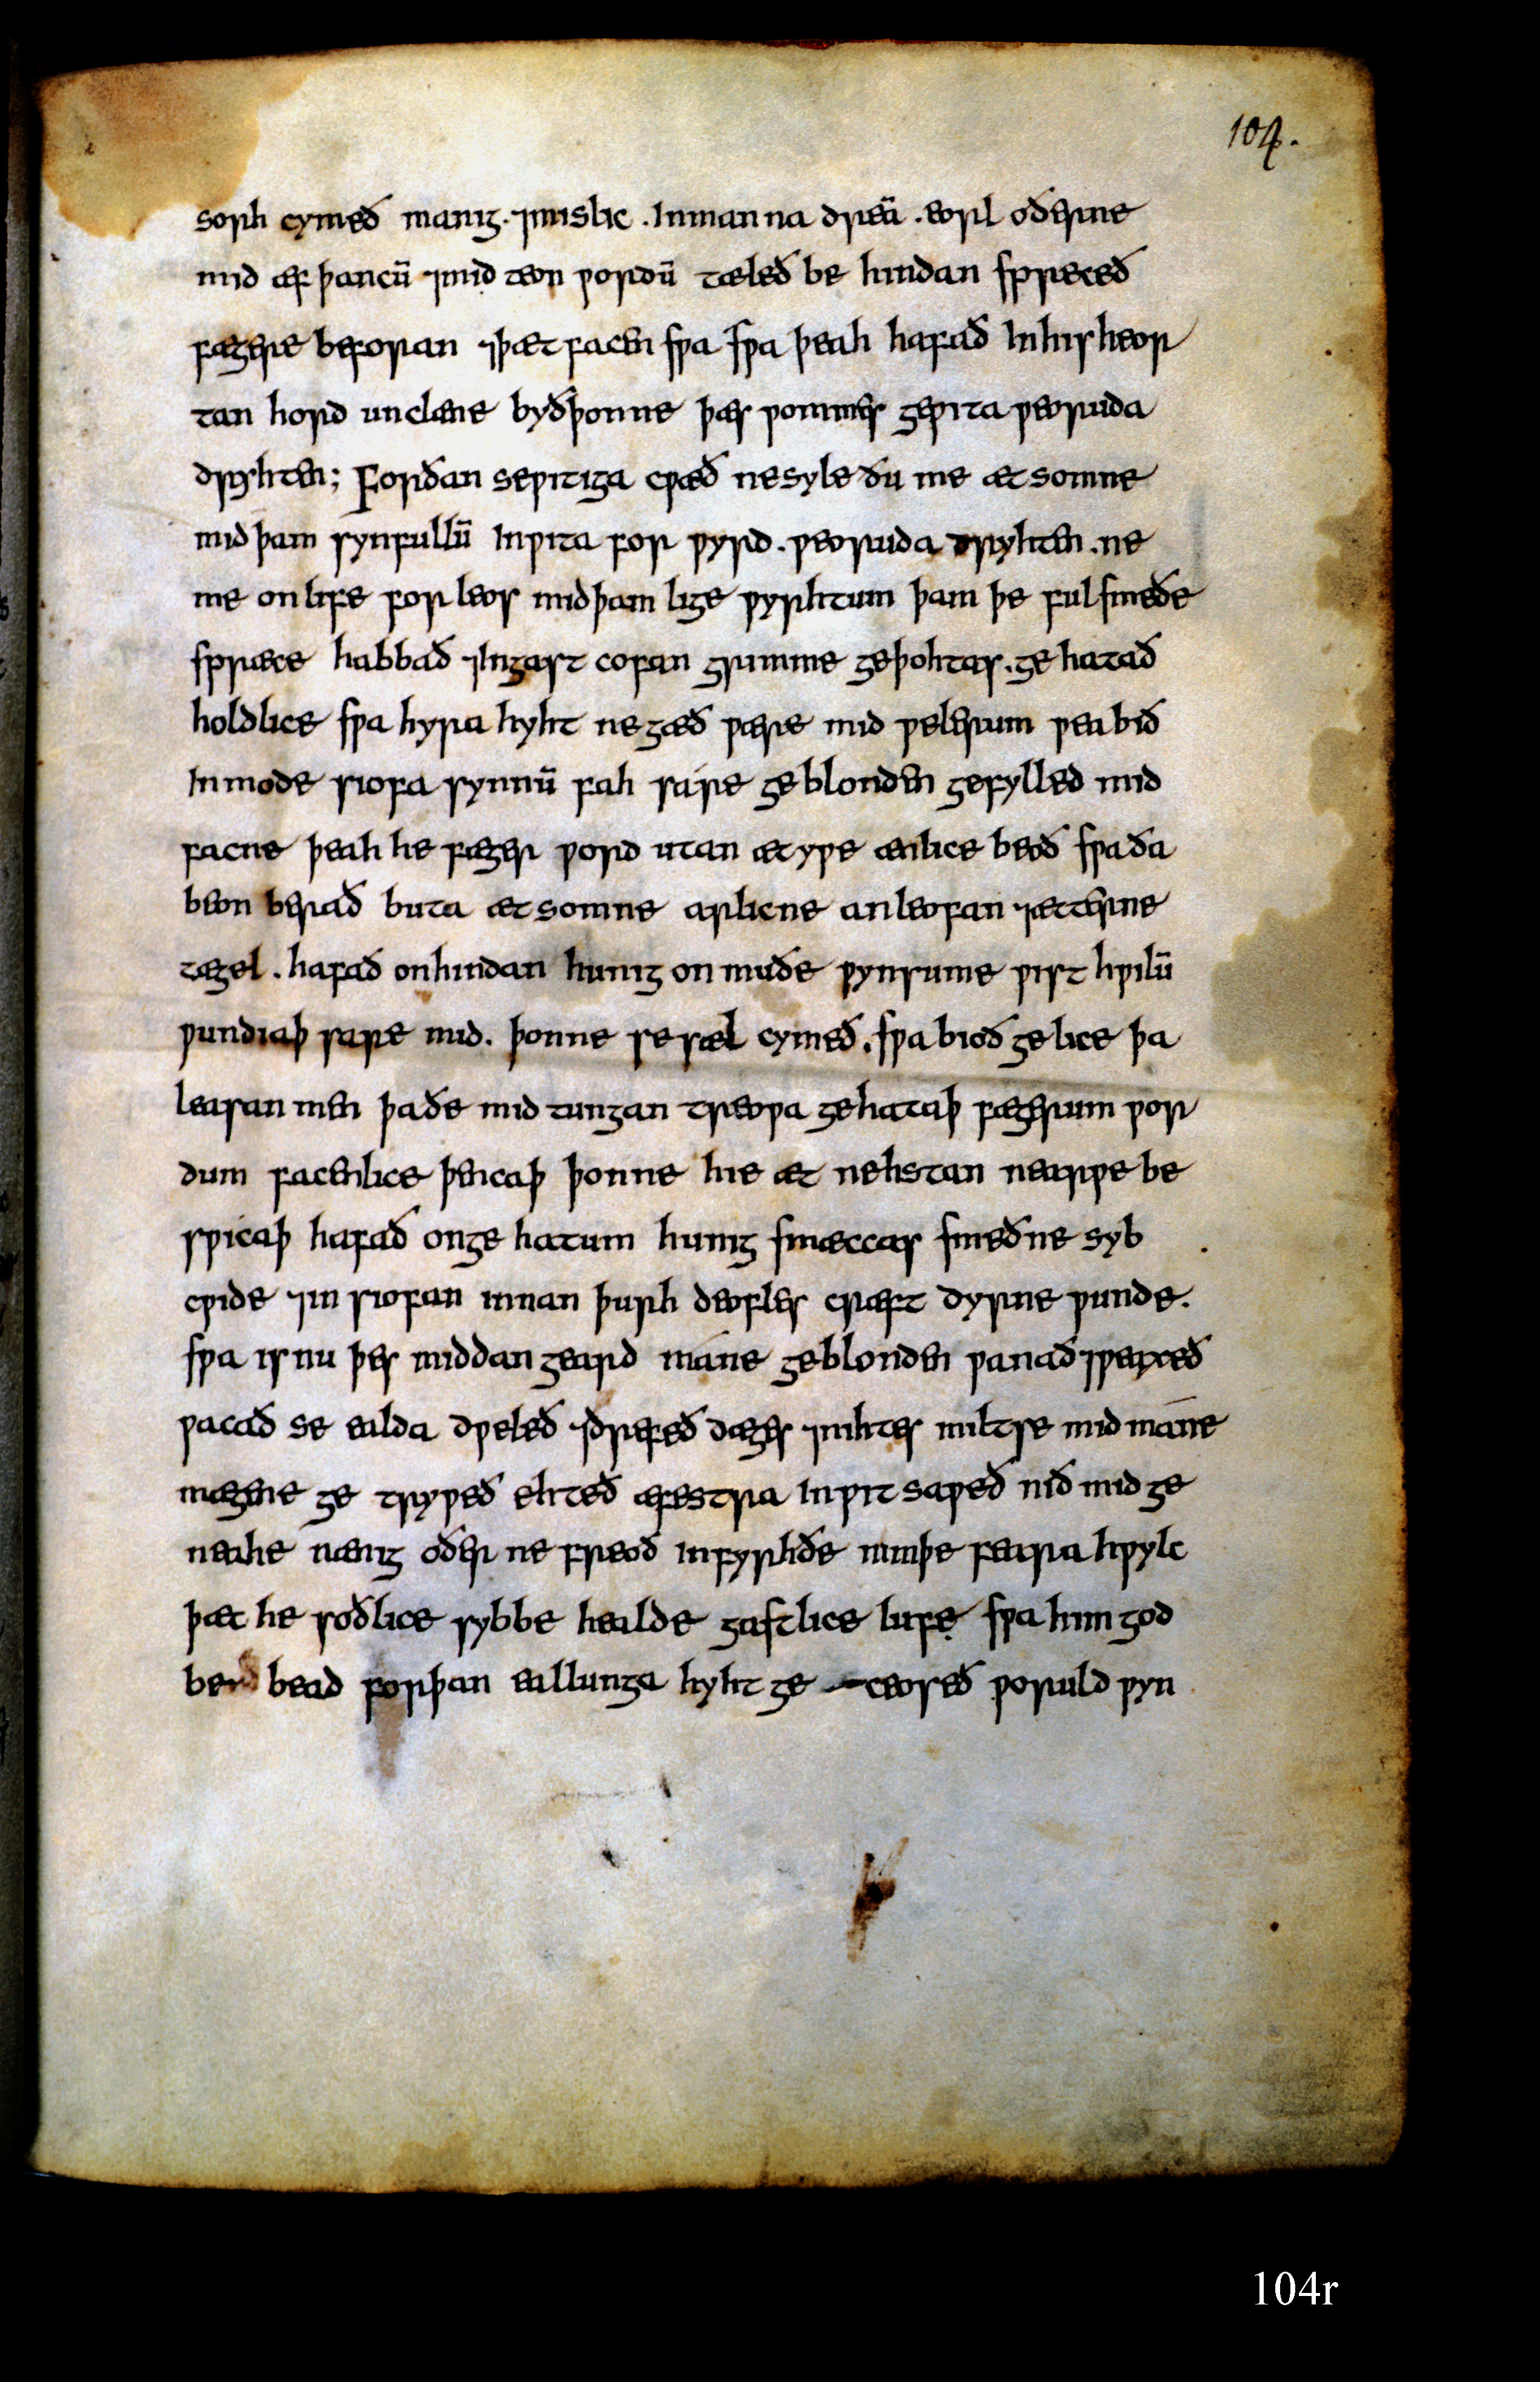 104.
sorh cymeð maniȝ. ⁊mislic .Inmanna dreā .eorl oðerne
mid æfþancū ⁊mid teon ƿordū tæleð behindan spreceð
fæȝere beforan ⁊þæt facen sƿa sƿa þeah hafað Inhis heor
tan hord unclæne byðþonne þæs ƿommes ȝeƿita ƿeoruda
dryhten; Forðan seƿitiȝa cƿæð nesyle ðu me ætsomne
mid þam synfullū Inƿita forƿyrd. ƿeoruda dryhten. ne
me onlife forleos midþam liȝeƿyrhtum þam þe ful smeðe
spræce habbað ⁊Inȝast cofan ȝrimme ȝeþohtas. ȝehatað
holdlice sƿa hyra hyht neȝæð ƿære mid ƿelerum ƿea bið
Inmode siofa synnū fah sáre ȝeblonden ȝefylled mid
facne þeah he fæȝer ƿord utan ætyƿe ænlice beoð sƿa ða
beon berað buta ætsomne arlicne anleofan ⁊ætterne
tæȝel. hafað onhindan huniȝ on muðe ƿynsume ƿist hƿilū
ƿundiaþ sare mid. þonne se sæl cymeð. sƿa bioð ȝelice þa
leasan men þaðe mid tunȝan treoƿa ȝehataþ fæȝerum ƿor
dum facenlice þencaþ þonne hie æt nehstan nearƿe be
sƿícaþ hafað onȝehatum huniȝ smæccas smeðne syb
cƿide ⁊in siofan innan þurh deofles cræft dyrne ƿunde.
sƿa is nu þes middanȝeard máne ȝeblonden ƿanað ⁊ƿeaxeð
ƿacað se ealda dƿeleð ⁊dræfeð dæȝes ⁊nihtes miltse mid máne
mæȝene ȝetryƿeð ehteð æfestra Inƿit saƿeð nið mid ȝe
neahe næniȝ oðer ne freoð infyrhðe nimþe feara hƿylc
þæt he soðlice sybbe healde ȝastlice lufe sƿa him ȝod
bebead forþan eallunȝa hyht ȝeceoseð ƿoruld ƿyn
104r